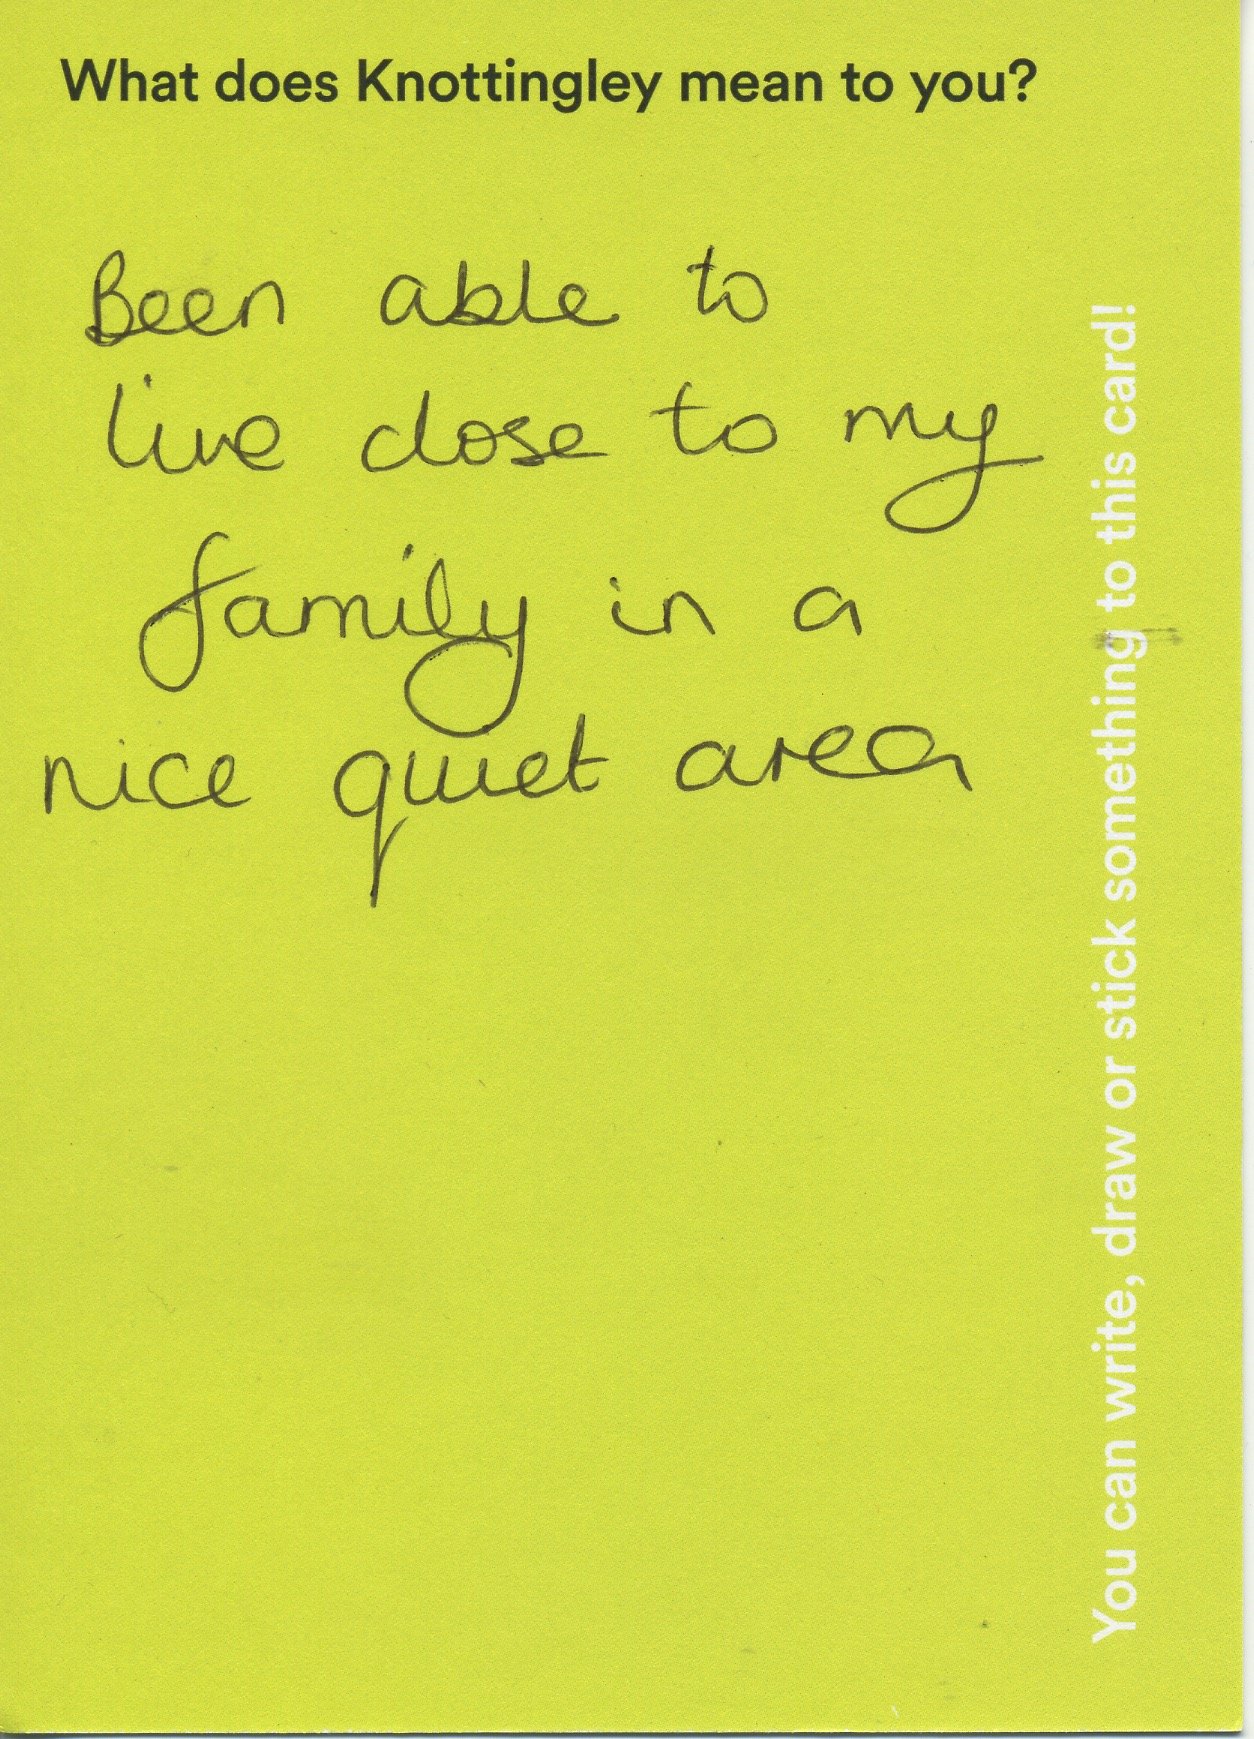 What does Knottingley mean to you?
Been able to
live close to my
family in a
nice quiet area
You can write, draw or stick something to this card!